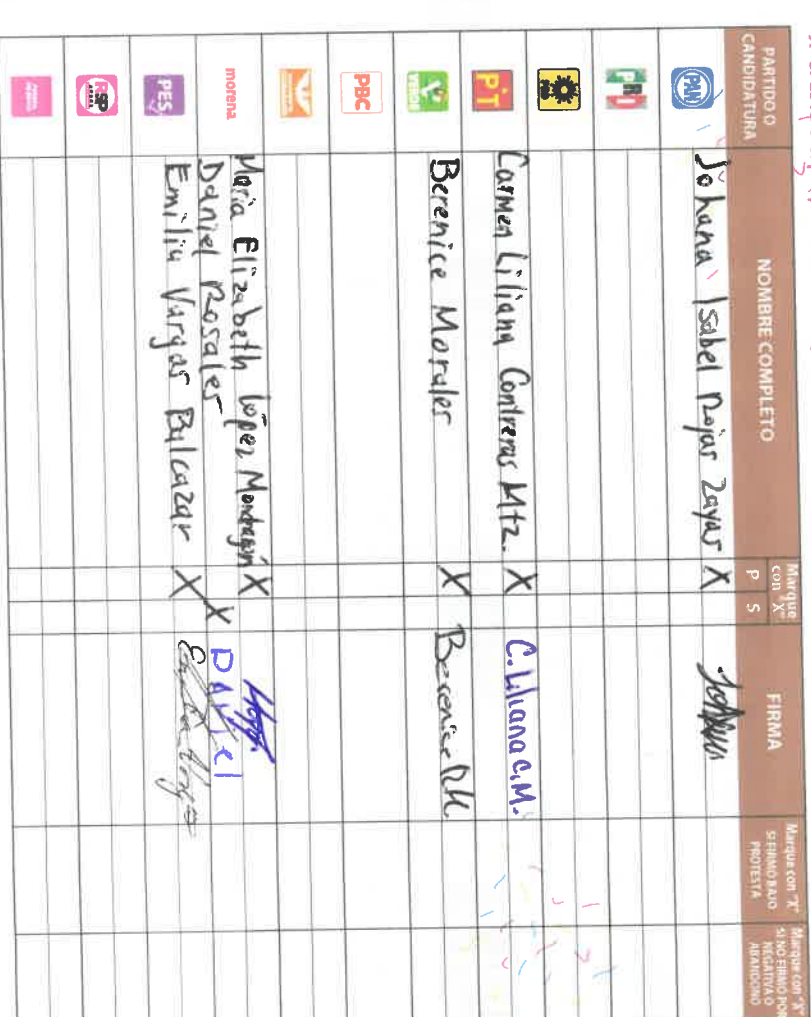 PARTIDO O CANDIDATURA
NOMBRE COMPLETO
Marque con "X"
P S
FIRMA
Marque con "X" SI FIRMÓ BAJO PROTESTA
Marque con "X" SI NO FIRMÓ POR NEGATIVA O ABANDONO
PAN Johana Isabel Rojas Zayas X
PRI
PRD
PT Carmen Liliana Contreras Mtz. X C. Liliana C.M.
VERDE Berenice Morales X Berenice
PBC
morena Maria Elizabeth López Mondragón X
Daniel Rosales X Daniel
PES Emilia Vargas Balcazar X Emilia Vargas
RSP